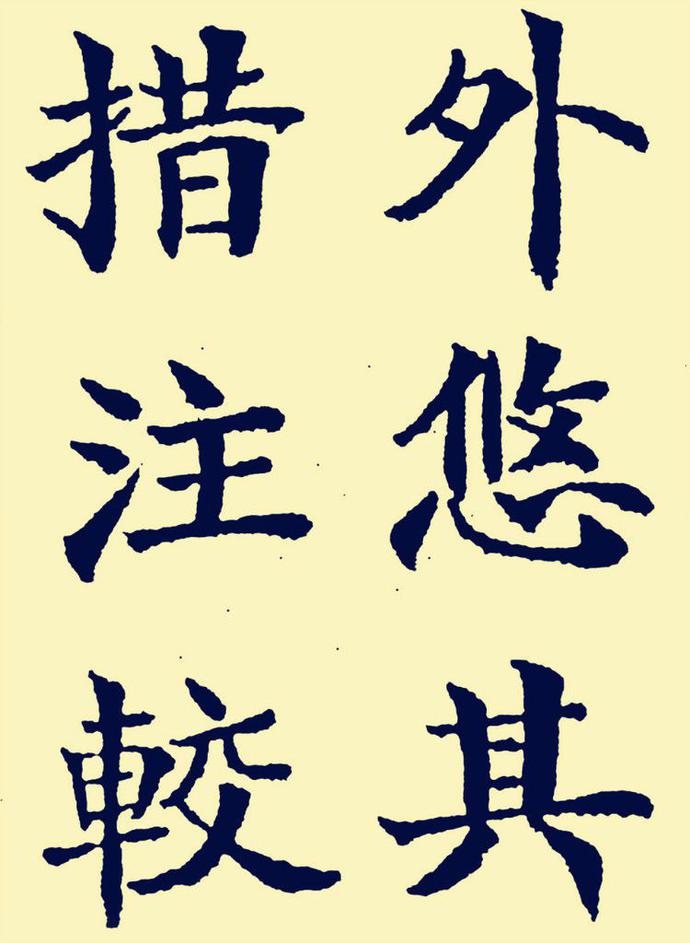 外悠其
措注較